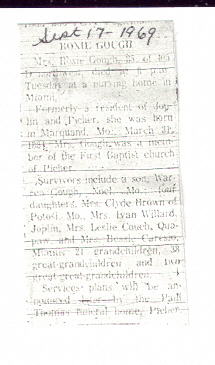 Sept 17-1969
ROXIE GOUGH
Mrs. Roxie Gough, of
died at 6 p.m.
Tuesday at a nursing home in
Miami.
Formerly a resident of Jop-
lin and Picher, she was born
in Marquand, Mo., March 31,
Mrs. Gough was a mem-
ber of the First Baptist church
of Picher.
Survivors include a son, War-
ren Gough, Noel, Mo.; four
daughters, Mrs. Clyde Brown of
Potosi, Mo., Mrs. Ivan Willard,
Joplin, Mrs. Leslie Couch, Qua-
paw, and Mrs.
Miami; 21 grandchildren, 38
great-grandchildren and two
great-great-grandchildren.
Services plans will be an-
nounced later by the Paul
Thomas funeral home, Picher